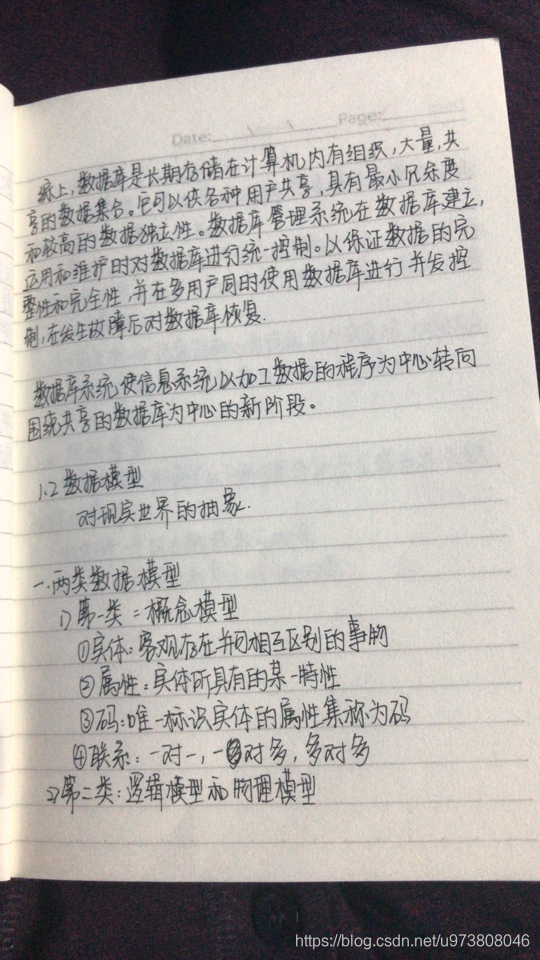 Date: \ \ Page:
综上,数据库是长期存储在计算机内有组织,大量,共
享的数据集合。它可以供各种用户共享,具有最小冗余度
和较高的数据独立性。数据库管理系统在数据库建立,
运用和维护时对数据库进行统一控制。以保证数据的完
整性和完全性,并在多用户同时使用数据库进行并发控
制,在发生故障后对数据库恢复.
数据库系统使信息系统以加工数据的程序为中心转向
围绕共享的数据库为中心的新阶段。
1.2 数据模型
对现实世界的抽象.
一.两类数据模型
1)第一类:概念模型
①实体:客观存在并可相互区别的事物
②属性:实体所具有的某一特性
③码:唯一标识实体的属性集称为码
④联系:一对一,一对多,多对多
2)第二类:逻辑模型和物理模型
https://blog.csdn.net/u973808046